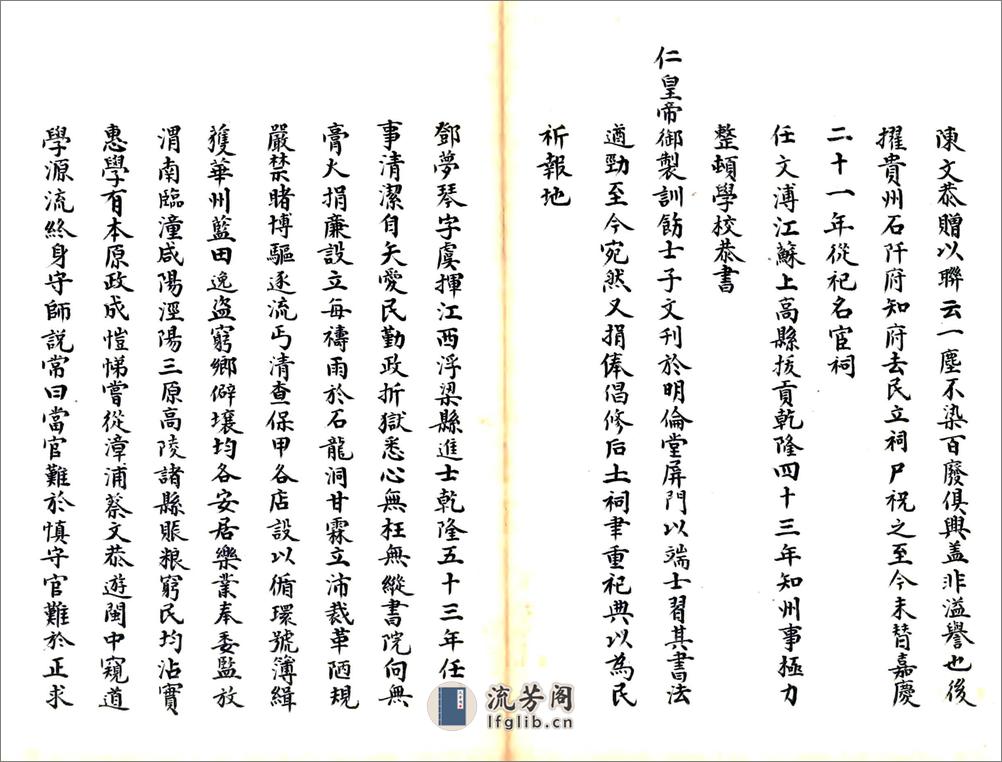 陳文恭贈以聯云一塵不染百廢俱興盖非溢譽也後
擢貴州石阡府知府去民立祠尸祝之至今未替嘉慶
二十一年從祀名宦祠
任文溥江蘇上高縣拔貢乾隆四十三年知州事極力
整頓學校恭書
仁皇帝御製訓飭士子文刊於明倫堂屏門以端士習其書法
遒勁至今宛然又捐俸倡修后土祠聿重祀典以為民
祈報地
鄧夢琴字虞揮江西浮梁縣進士乾隆五十三年任
事清潔自矢愛民勤政折獄悉心無枉無縱書院向無
膏火捐廉設立每禱雨於石龍洞甘霖立沛裁革陋規
嚴禁賭博驅逐流丐清查保甲各店設以循環號簿緝
獲華州藍田逸盜窮鄉僻壤均各安居樂業奉委監放
渭南臨潼咸陽涇陽三原高陵諸縣賑粮窮民均沾實
惠學有本原政成愷悌嘗從漳浦蔡文恭遊閩中窺道
學源流終身守師説常曰當官難於慎守官難於正求
流芳阁
lfglib.cn